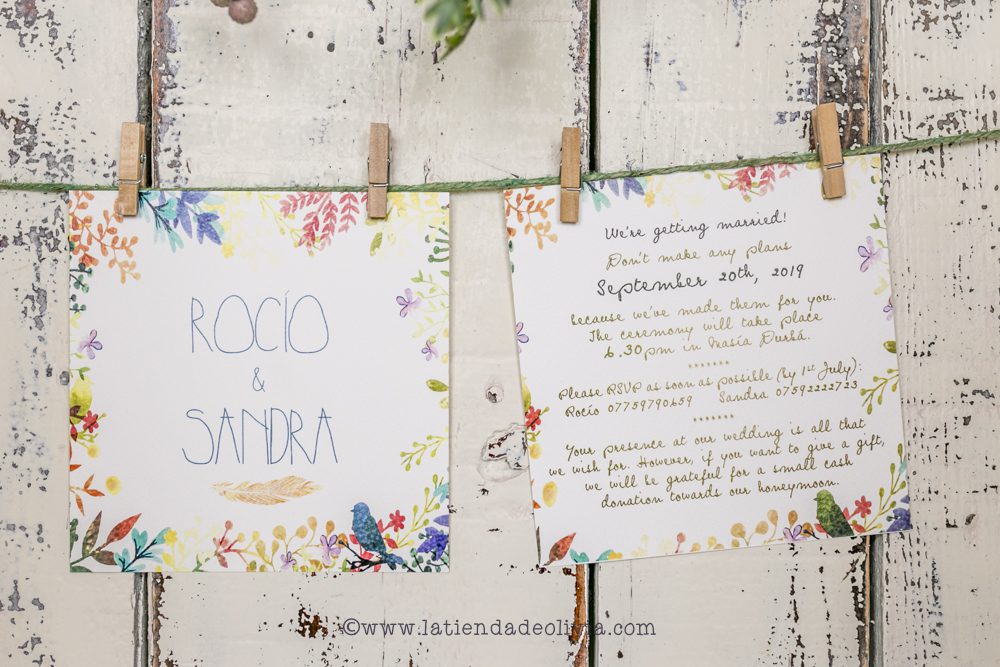 ROCÍO
&
SANDRA
We're getting married!
Don't make any plans
September 20th, 2019
because we've made them for you.
The ceremony will take place
6.30pm in Masía Durbá.
*******
Please RSVP as soon as possible (by 1st July):
Rocío 07759790659 Sandra 07592222723
*******
Your presence at our wedding is all that
we wish for. However, if you want to give a gift,
we will be grateful for a small cash
donation towards our honeymoon.
©www.latiendadeolivia.com